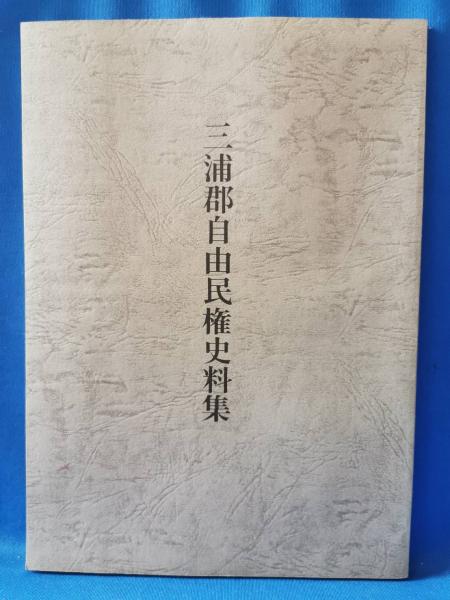 三浦郡自由民権史料集